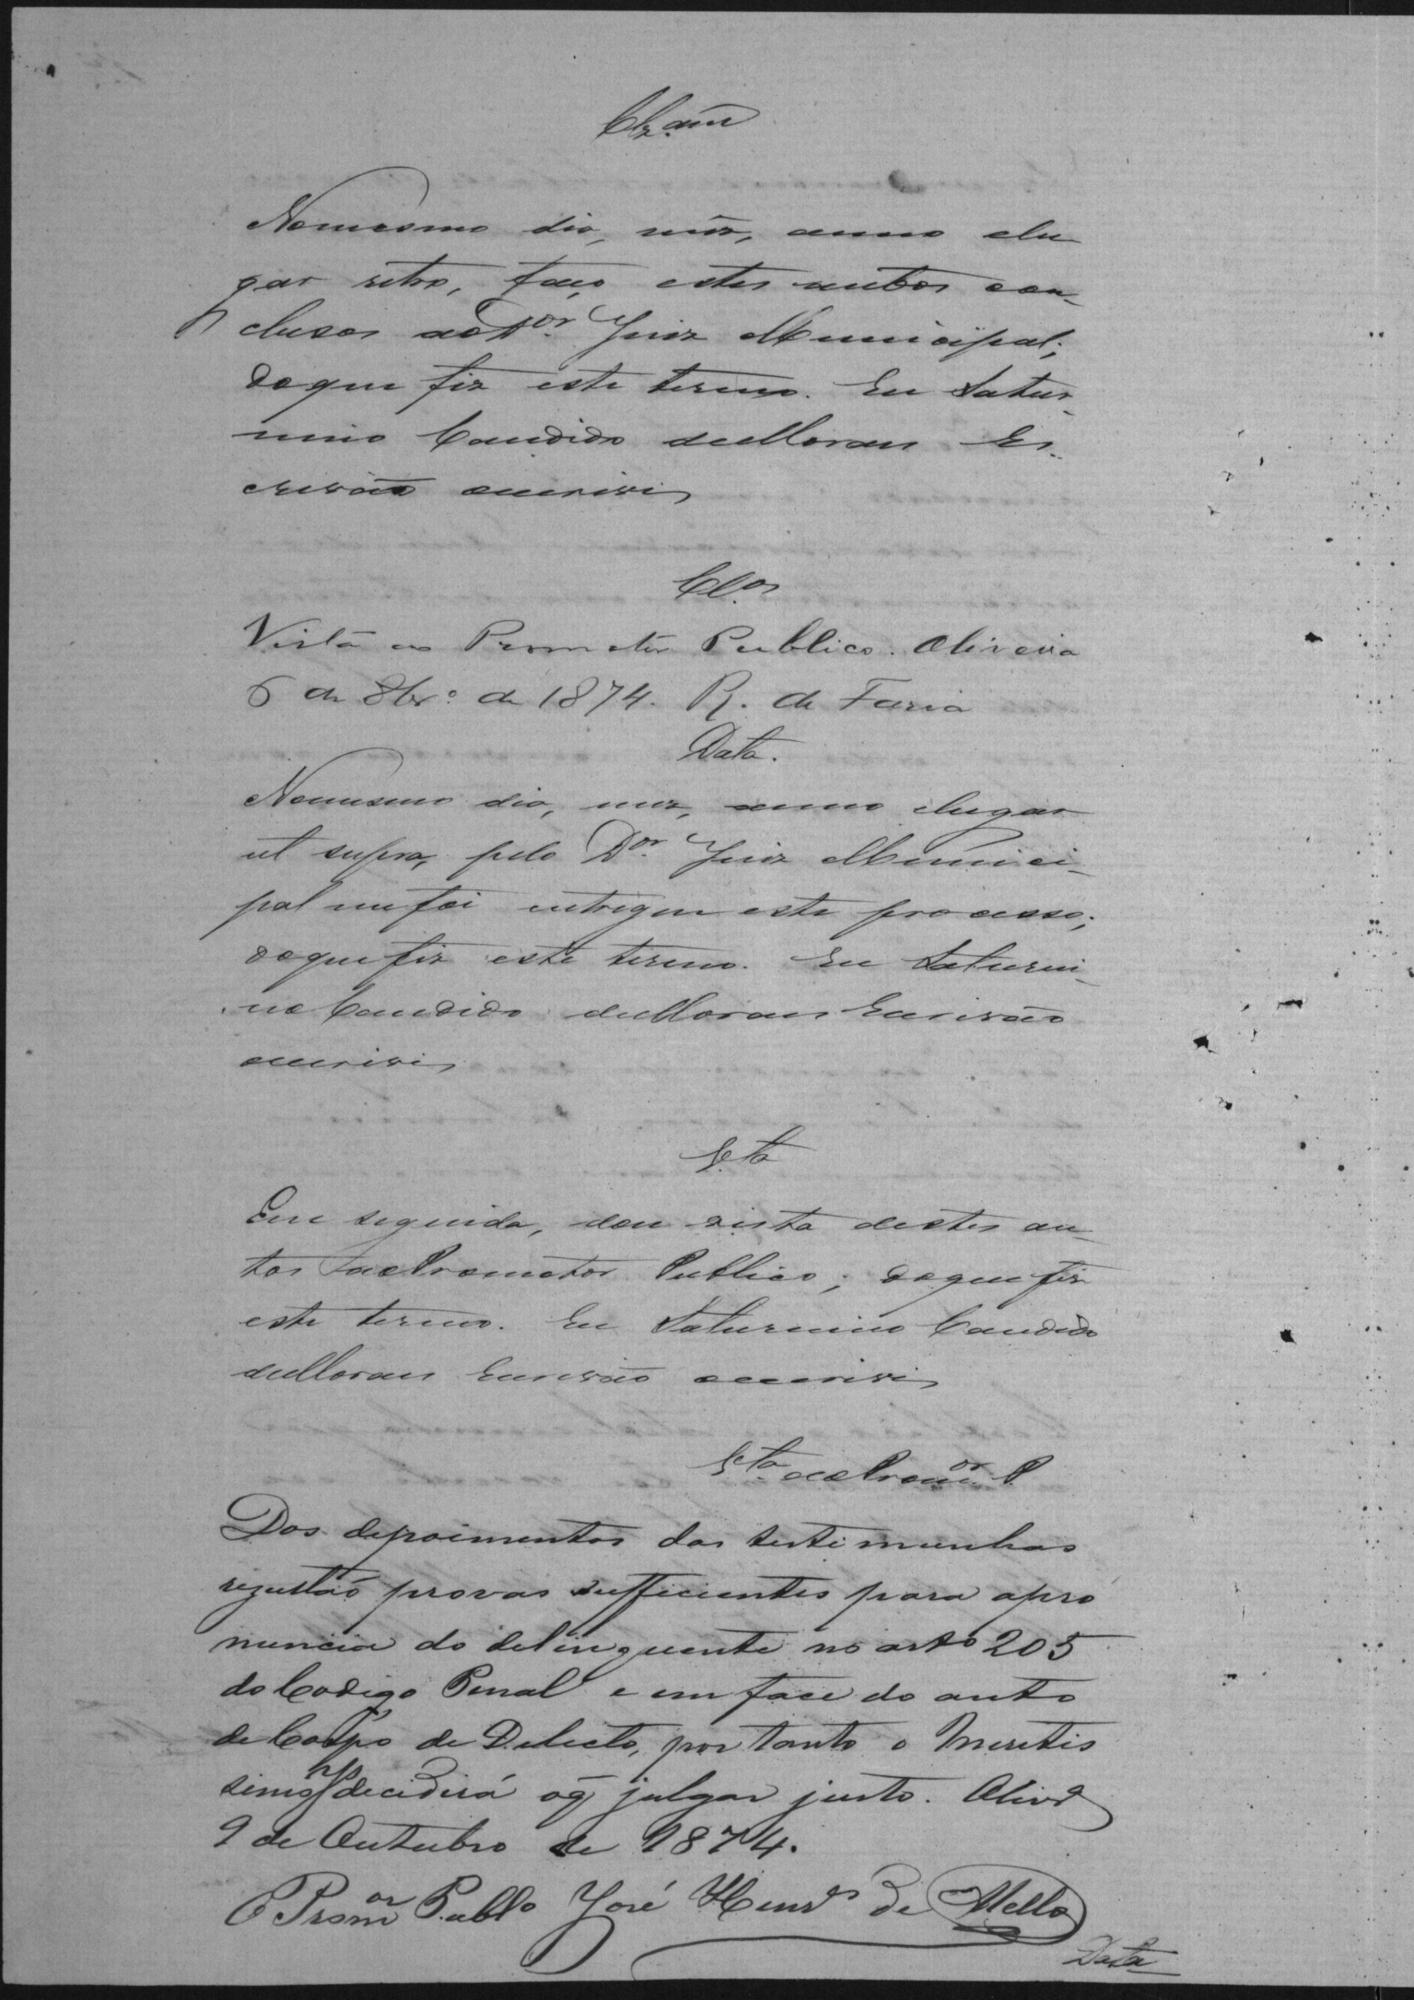 Clzam
Nomesmo dia, mez, anno elu
gar retro, faço estes autos con-
clusos ao Dor. Juiz Municipal;
doque fiz este termo. Eu Satur-
nino Candido deMoraes Es-
crivão oescrivi
Clos
Vista ao Promotor Publico. Oliveira
6 de 8br.º de 1874. R. de Faria
Data.
Nomesmo dia, mez, anno elugar
ut supra, pelo Dor. Juiz Munici-
pal mefoi entregue este processo;
doquefiz este termo. Eu Saturni-
no Candido deMoraes Escrivão
oescrivi
Vta
Em seguida, dou vista destes au-
tos aoPromotor Publico; doquefiz
este termo. Eu Saturnino Candido
deMoraes Escrivão oescrivi
Vta aoPromor P.
Dos depoimentos das testimunhas
rezultão provas sufficientes para apro
nuncia do delinquente no arto 205
do Codigo Penal e em face do auto
de Corpo de Delicto, por tanto o Meretis
simo decidirá oq̃ julgar justo. Olivra
9 de Outubro de 1874.
O Promor Publo José Henrs de Mello
Data